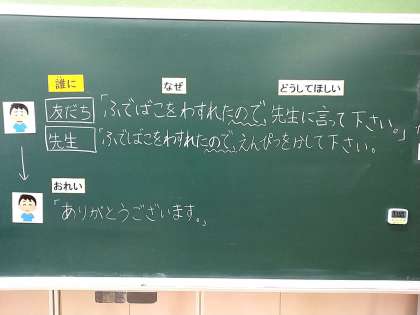 誰に なぜ どうしてほしい
友だち 「ふでばこをわすれたので、先生に言って下さい。」
先生 「ふでばこをわすれたので、えんぴつをかして下さい。
おれい
「ありがとうございます。」